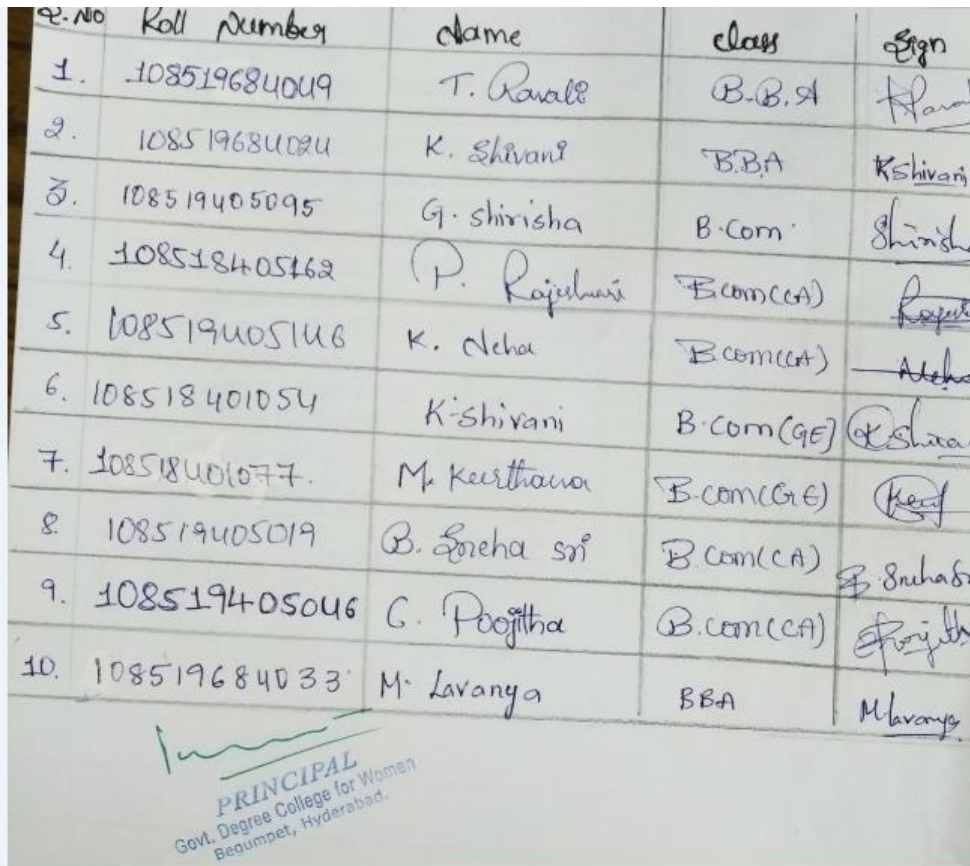 S.NO Roll Number Name class Sign
1. 108519684049 T. Ravali B.B.A Ravali
2. 108519684024 K. Shivani B.B.A KShivani
3. 108519405095 G. shirisha B.Com Shirisha
4. 108518405162 P. Rajeshwari B.com(CA)
5. 108519405146 K. Neha B.com(CA) Neha
6. 108518401054 K. shivani B.com(GE) K Shiva
7. 108518401077. M. Keerthana B.com(GE) Keer
8. 108519405019 B. Sneha sri B.com(CA) B. SnehaSr
9. 108519405046 C. Poojitha B.com(CA) Poojith
10. 108519684033 M. Lavanya BBA Mlavanya
PRINCIPAL
Govt. Degree College for Women
Begumpet, Hyderabad.